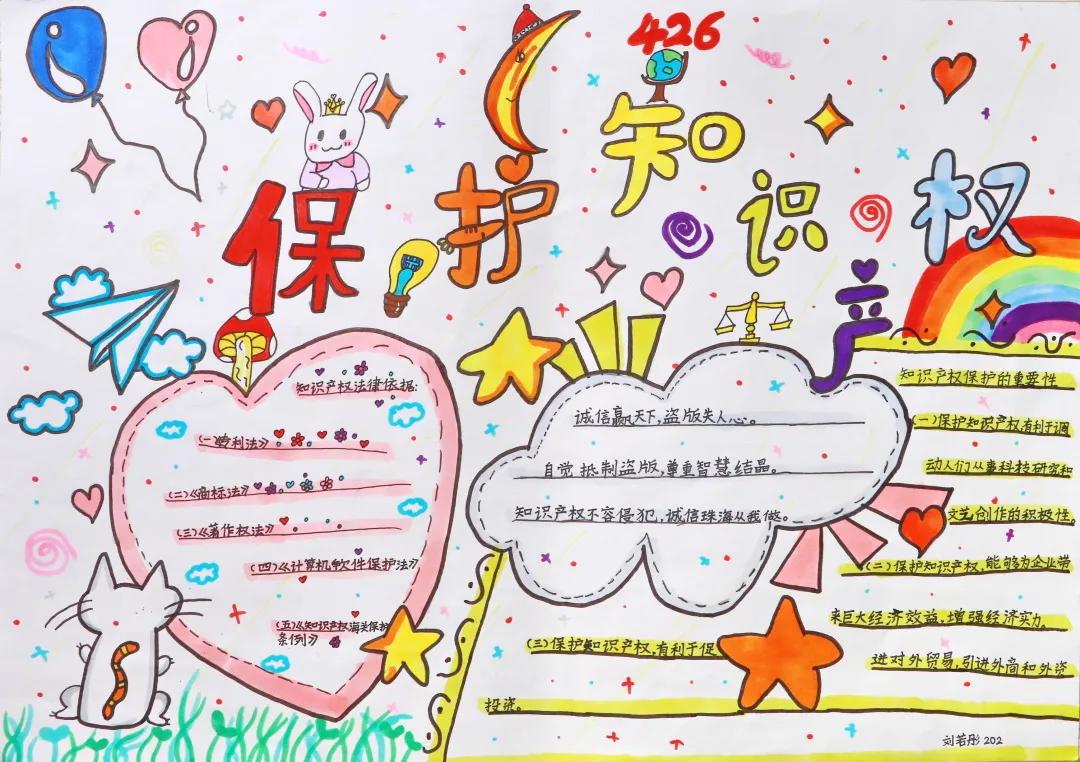 426
保护知识产权
知识产权法律依据:
(一)《专利法》
(二)《商标法》
(三)《著作权法》
(四)《计算机软件保护法》
(五)《知识产权海关保护
条例》
诚信赢天下,盗版失人心。
自觉抵制盗版,尊重智慧结晶。
知识产权不容侵犯,诚信珠海从我做。
知识产权保护的重要性
(一)保护知识产权有利于调
动人们从事科技研究和
文艺创作的积极性。
(二)保护知识产权,能够为企业带
来巨大经济效益,增强经济实力。
(三)保护知识产权,有利于促
进对外贸易,引进外商和外资
投资。
刘若彤 202